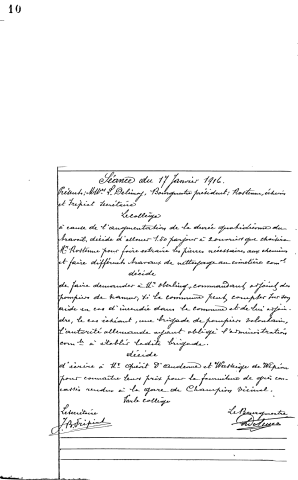 10
Séance du 17 Janvier 1916.
Présents: MMrs F. Delimoy, Bourgmestre président; Rostenne, échevin
et Fripiat secrétaire
Le collège
à cause de l'augmentation de la durée quotidienne du
travail, décide d'allouer 1.80 par jour à 2 ouvriers que choisira
Mr Rostenne pour faire extraire les pierres nécessaires aux chemins
et faire différents travaux de nettoyage au cimetière coml
décide
de faire demander à Mr commandant adjoint des
pompiers de Namur, si la commune peut compter sur son
aide en cas d'incendie dans la commune et de lui
le cas échéant, une brigade de pompiers volontaires,
L'autorité allemande ayant obligé l'administration
comle à établir ladite brigade.
décide
d'écrire à Mr d'Andenne et de
pour connaître leurs prix pour la fourniture de grès
cassés rendus à la gare de Champion Vicinal.
Par le collège
Le secrétaire
Le Bourgmestre
J. Fripiat